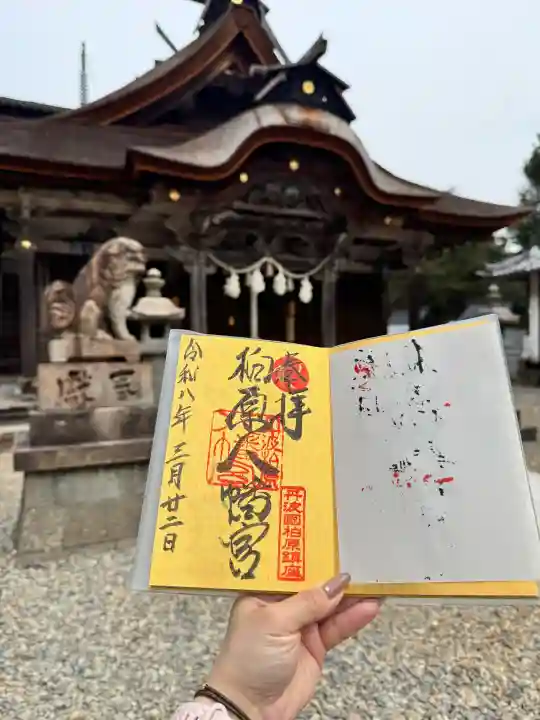 奉拝
柏原八幡宮
丹波國柏原鎮座
令和八年三月廿二日